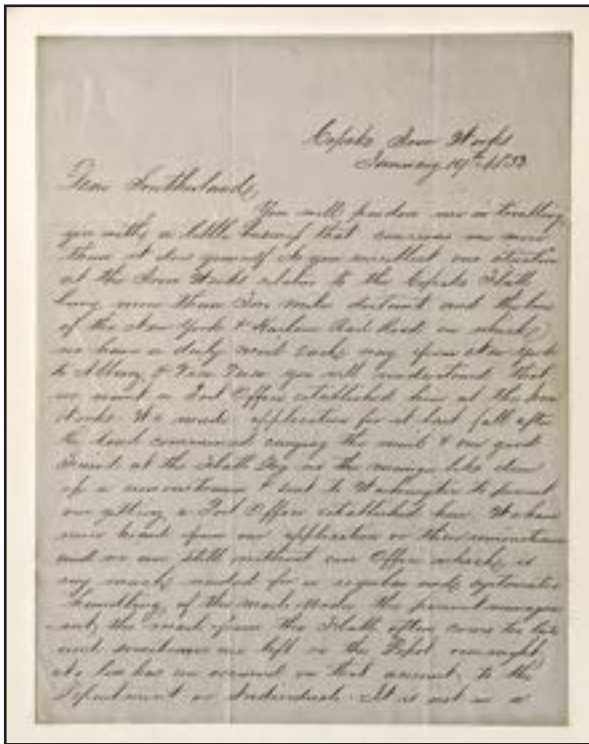 Copake Iron Works
January 19th 1853
Dear Southerland,
You will pardon me in troubling
you with a little business that concerns me more
than it does yourself As you recollect our situation
at the Iron Works relative to the Copake Flatt
being more than two miles distant and the line
of the New York & Harlem Rail Road on which
we have a daily mail each way from New York
to Albany & you will understand that
we want a Post Office established here at the Iron
Works. We made application for it last fall after
the road commenced carrying the mail & our good
friend at the Flatt in the manger like drew
up a remonstrance & sent to Washington to prevent
our getting a Post Office established here. We have
never heard from our application or their remonstrance
and we are still without our Office which is
very much needed for a regular and systematic
handling of the mail. Under the present manage
ment the mail from the Flatt often comes too late
and sometimes are left in the Depot over night
no loss has on that account to the
Department or Individuals. It is not in a